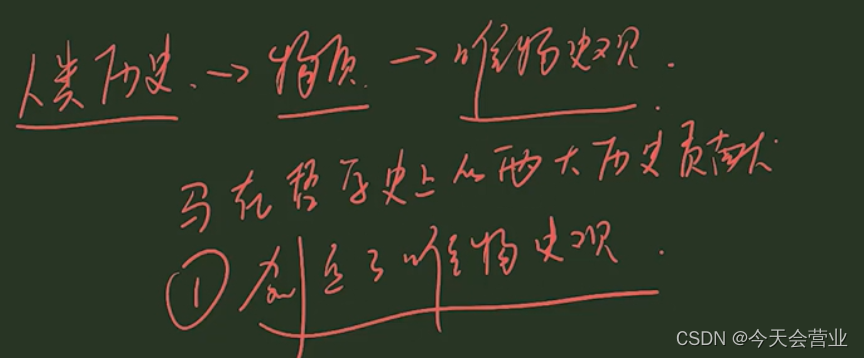 人类历史.→物质.→唯物史观.
马在哲学史上的两大历史贡献
①创立了唯物史观.
CSDN @今天会营业